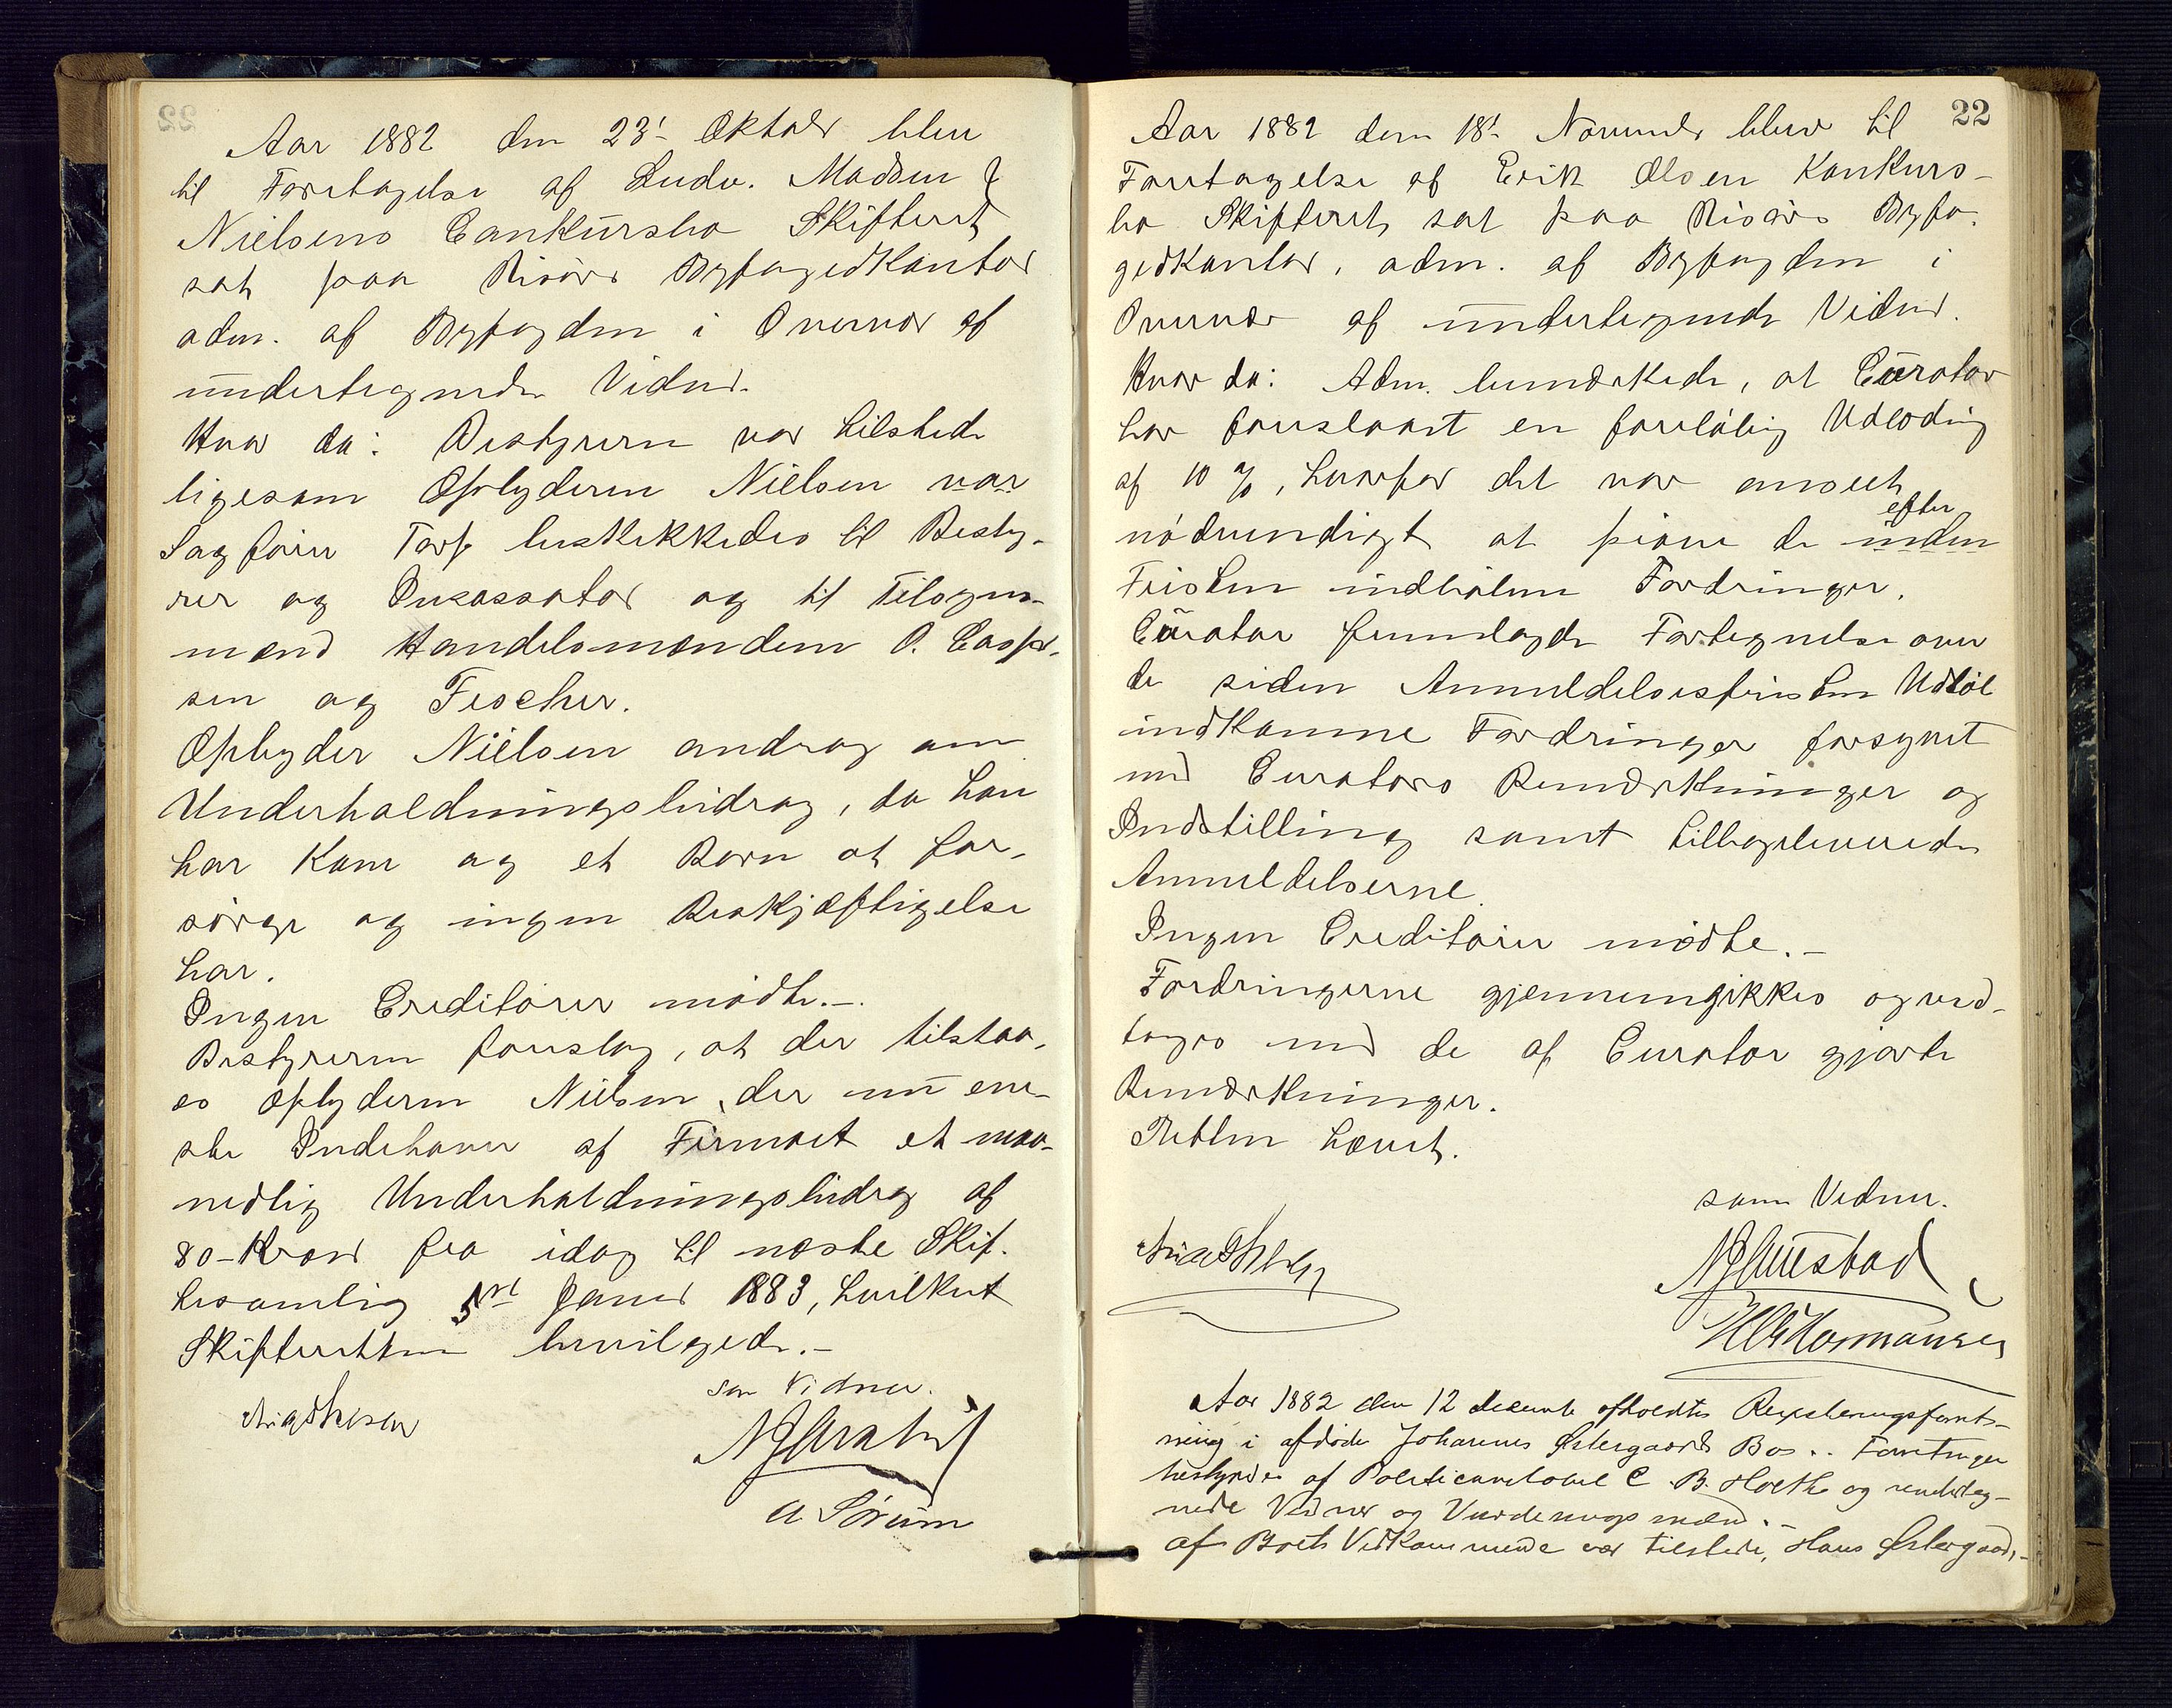 Aar 1882 den 23' Oktober blev
til Foretagelse af Ludv. Madsen &
Nielsens Conkursbo Skifteret
sat paa Risørs Byfogedkontor
adm. af Byfogden i Overvær af
undertegnede Vidner.
Hvor da: Bestyreren var tilstede
ligesom Opbyderen Nielsen var
Sagfører Torp beskikkedes til Besty-
rer og Inkassator og til Tilsyns-
mænd Handelsmændene O. Casper-
sen og Fischer.
Opbyder Nielsen androg om
Underholdningsbidrag, da han
har Kone og et Barn at for-
sørge og ingen Beskjæftigelse
har.
Ingen Creditorer mødte.-
Bestyreren foreslog, at der tilstaa-
es Opbyderen Nielsen, der nu ene-
ste Indehaver af Firmaet et maa-
nedlig Underholdningsbidrag af
80- Kroner fra idag til næste Skif-
tesamling 5te Januar 1883, hvilket
Skifteretten bevilgede.-
som Vidner.
A Sørum
22
Aar 1882 den 18' November blev til
Foretagelse af Erik Olsen Konkurs-
bo Skifteret sat paa Risørs Byfo-
gedkontor, adm. af Byfogden i
Overvær af undertegnede Vidner.
Hvor da: Adm. bemærkede, at Curator
har foreslaaet en foreløbig Udlodning
af 10 %, hvorfor det var anseet
efter
nødvendigt at prøve de inden
Fristen indløbne Fordringer.
Curator fremlagde Fortegnelse over
de siden Anmeldelsesfristens Udløb
indkomne Fordringer forsynet
med Curators Bemærkninger og
Indstilling samt tilbageleverede
Anmeldelserne.
Ingen Creditorer mødte.-
Fordringerne gjennemgikkes og ved-
toges med de af Curator gjorte
Bemærkninger.
Retten hævet.
som Vidner.
Aar 1882 den 12 december afholdtes Registreringsforret-
ning i afdøde Johannes Østergaards Bo.. Forretningen
bestyrdes af Politiconstabel C. B. Holth og underteg-
nede Vidner og Vurderingsmænd.-
af Boets Vedkommende var tilstede, Hans Østergaard,-